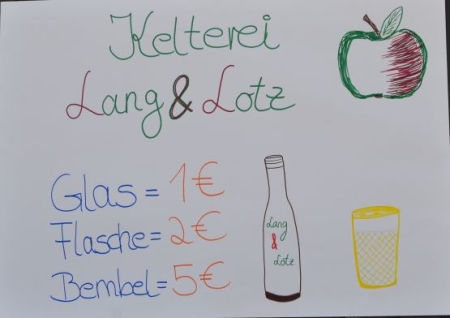 Kelterei
Lang & Lotz
Glas = 1€
Flasche = 2€
Bembel = 5€
Lang
&
Lotz